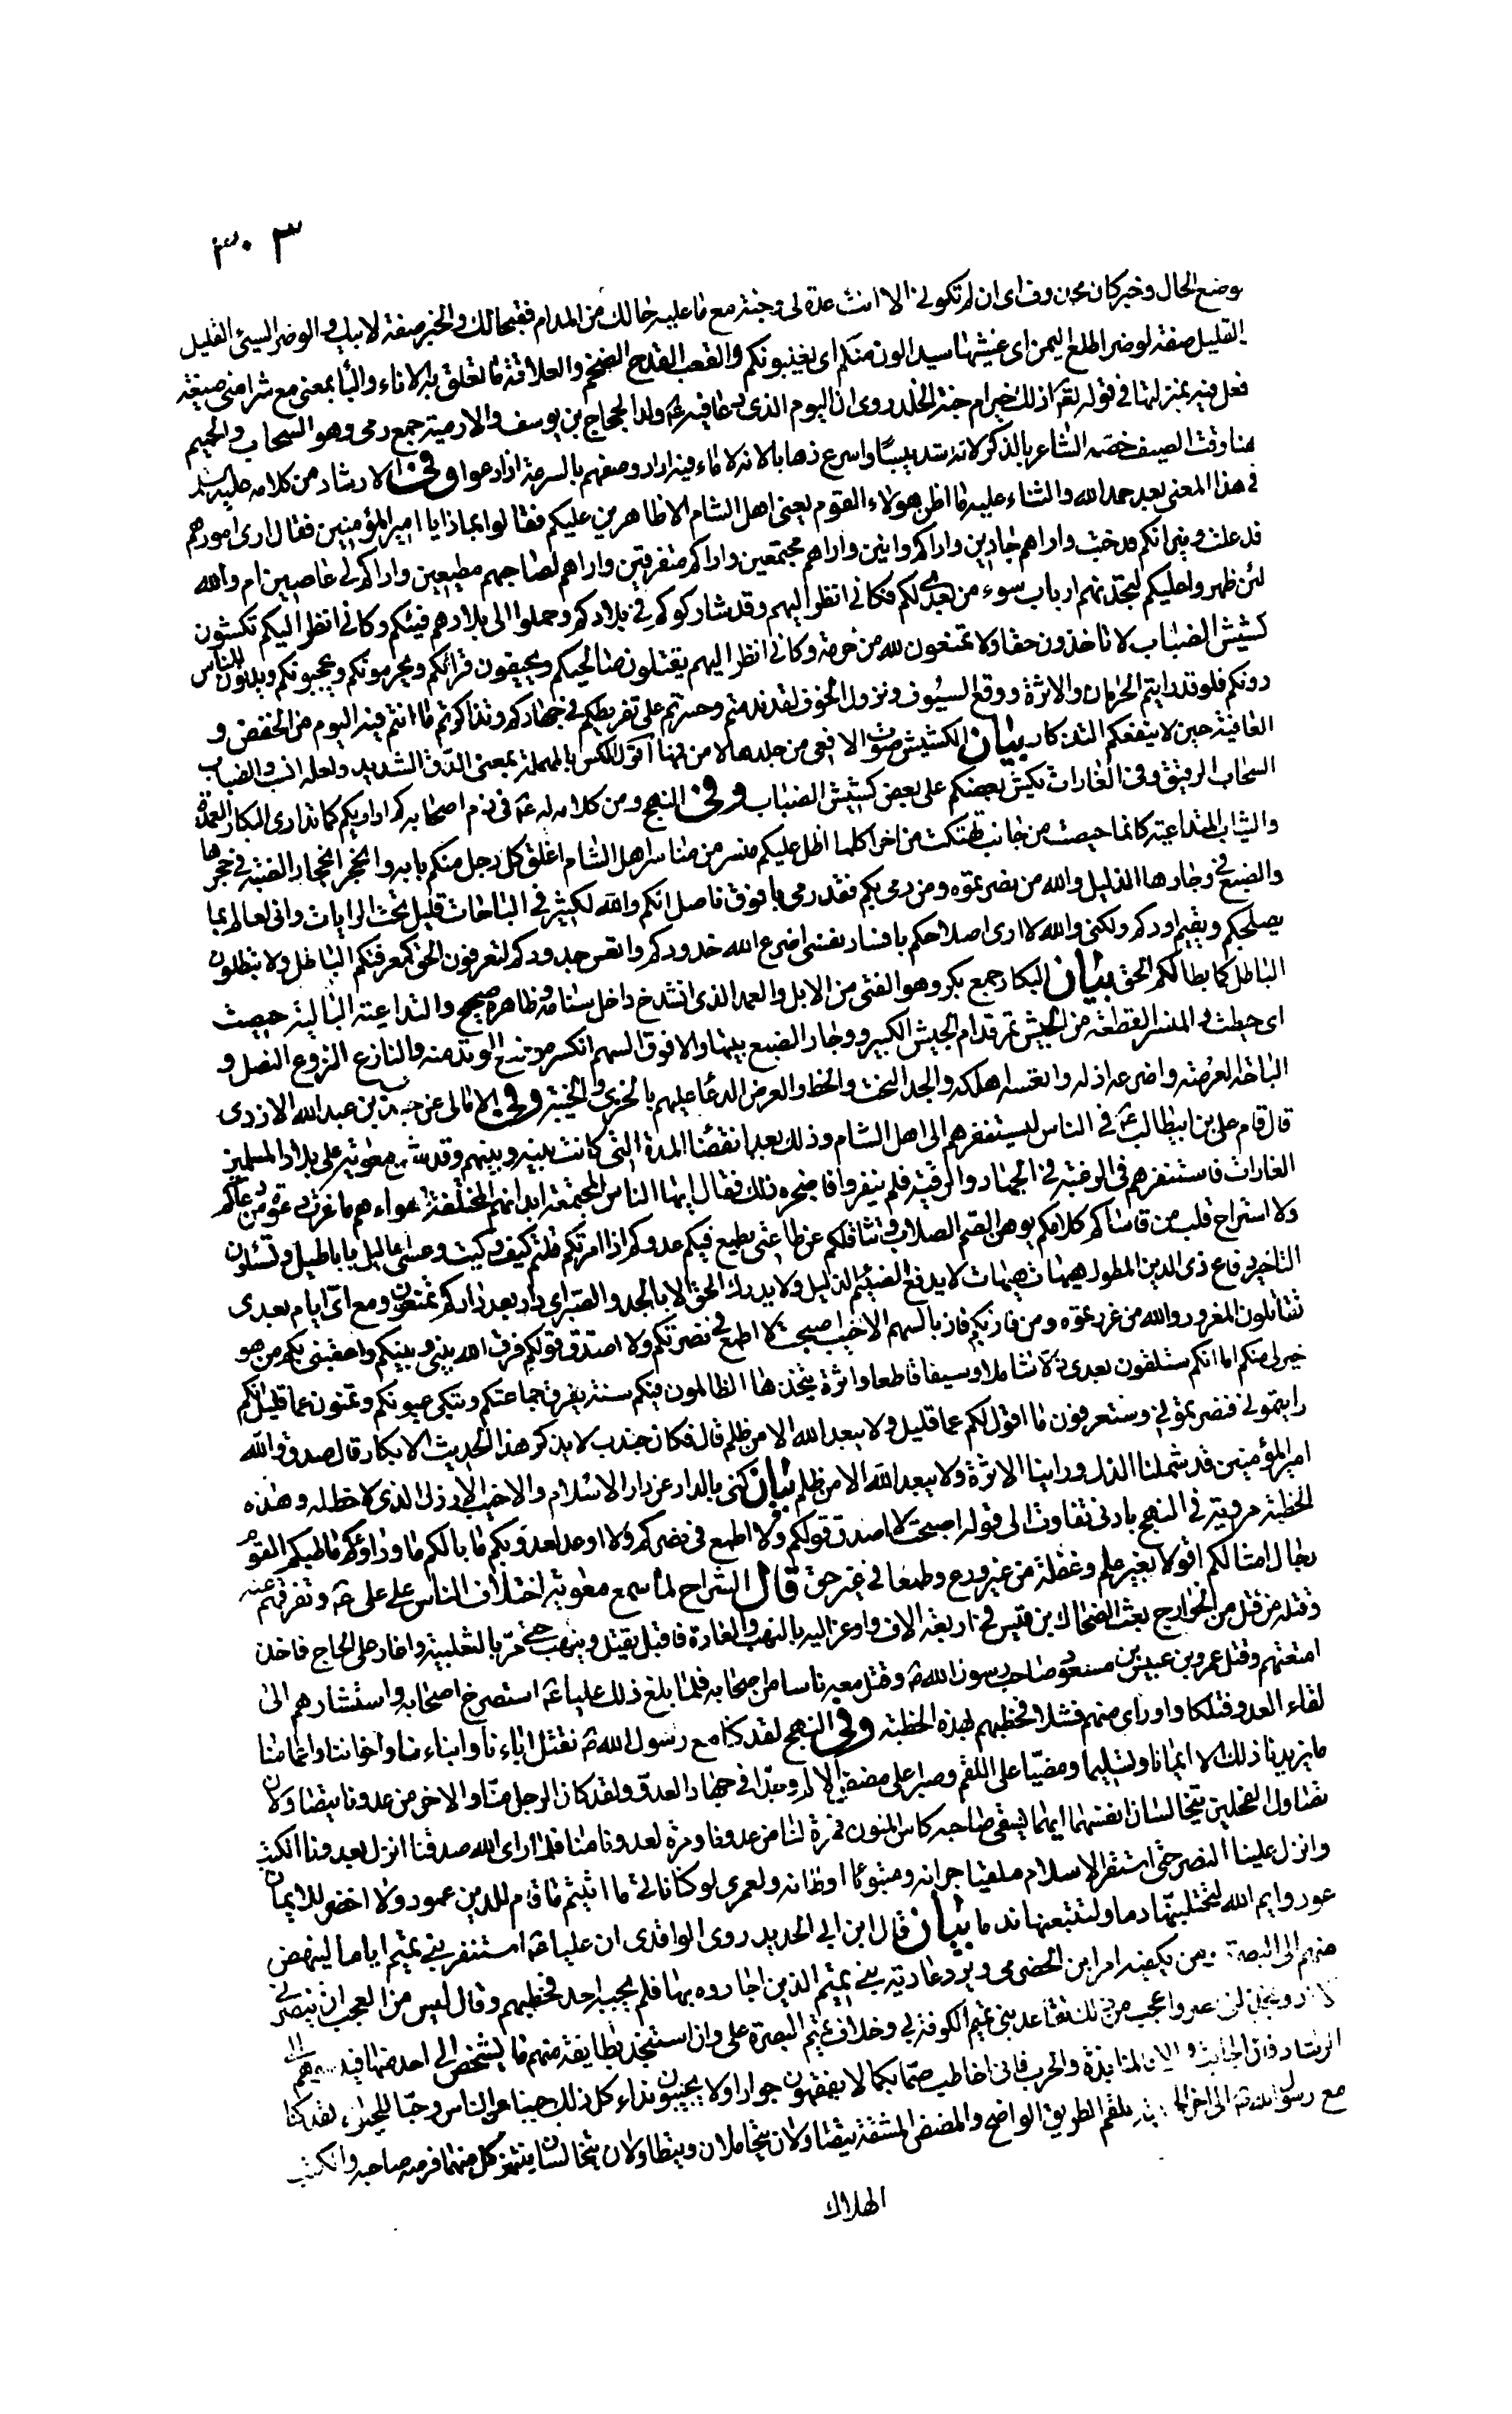 ٣٠٣
بوضع الحال وخبر كان محذوف اى ان لم تكونى الا انت عدة لى وجنة مع ما عليه حالك من المذام فقبحا لك والخير صفة لابيك والوضر السيئ القليل
القليل صفة لوضر اطلع اليمن اى غشيها سيدالون منكم اى يغلبونكم والقعب القدح الضخم والعلاقة ما تعلق به الاناء والباء بمعنى مع شر امنى صيغة
فعل فيه بمنزلتها في قوله تعالى اذلك خير ام جنة الخلد روى ان اليوم الذى دعا فيه ع ولد الحجاج بن يوسف والارمية جمع رمى وهو السحاب والحميم
هنا وقت الصيف خصه الشاعر بالذكر لانه اشد يبسا واسرع ذهابا لانه لا ماء فيه اراد وصفهم بالسرعة اذا دعوا وفي الارشاد من كلامه عليه السلام
في هذا المعنى بعد حمد الله والثناء عليه ما اظن هولاء القوم يعنى اهل الشام الا ظاهرين عليكم فقالوا بماذا يا امير المؤمنين فقال ارى امورهم
قد علت ونيرانكم قد خبت واراهم جادين واراكم وانين واراهم مجتمعين واراكم متفرقين واراهم لصاحبهم مطيعين واراكم لى عاصيين ام والله
لئن ظهروا عليكم لتجدنهم ارباب سوء من بعدى لكم فكانى انظر اليهم وقد شاركوكم في بلادكم وحملوا الى بلادهم فيئكم وكانى انظر اليكم تكشون
كشيش الضباب لا تاخذون حقا ولا تمنعون لله من حرمة وكانى انظر اليهم يقتلون صالحيكم ويخيفون قرائكم ويحرمونكم ويحجبونكم ويدنون الناس
دونكم فلو قد رايتم الحرمان والاثرة ووقع السيوف ونزول الخوف لقد ندمتم وحسرتم على تفريطكم في جهادكم وتذاكرتم ما انتم فيه اليوم من الخفض و
العافية حين لا ينفعكم التذكار بيان الكشيش صوت الافعى من جلدها لا من فمها اقول الكس بالمهملة بمعنى الدق الشديد ولعله انسب والضباب
السحاب الرقيق وفى الغارات يكش بعضكم على بعض كشيش الضباب وفى النهج ومن كلام له ع في ذم اصحابه كم اداريكم كما تدارى البكار العمدة
والثياب المتداعية كلما حيصت من جانب تهتكت من اخر اكلما اظل عليكم منسر من مناسر اهل الشام اغلق كل رجل منكم بابه وانجحر انجحار الضبة في جحرها
والضبع في وجارها الذليل والله من نصرتموه ومن رمى بكم فقد رمى بافوق ناصل انكم والله لكثير في الباحات قليل تحت الرايات وانى لعالم بما
يصلحكم ويقيم اودكم ولكنى والله لا ارى اصلاحكم بافساد نفسى اضرع الله خدودكم واتعس جدودكم لتعرفون الحق كمعرفتكم الباطل ولا تبطلون
الباطل كابطالكم الحق بيان البكار جمع بكر وهو الفتى من الابل والعمد الذى انشدخ داخل سنامه وظاهره صحيح والمتداعية البالية حيصت
اى خيطت والمنسر القطعة من الجيش تمر قدام الجيش الكبير ووجار الضبع بيتها والافوق السهم انكسر موضع الوتد منه والنازع المنزوع النصل و
الباحة العرصة واضرعه اذله واتعسه اهلكه والجد البخت والحظ والغرض الدعا عليهم بالخزى والخيبة وفي الامالى عن جندب بن عبد الله الازدى
قال قام على بن ابيطالب ع في الناس ليستنفرهم الى اهل الشام وذلك بعد انقضاء المدة التى كانت بينه وبينهم وقد شن معوية على بلاد المسلمين
الغارات فاستنفرهم في الرغبة في الجهاد والرقية فلم ينفروا فاضجره ذلك فقال ايها الناس المجتمعة ابدانهم المختلفة اهواءهم ما عزت دعوة من دعاكم
ولا استراح قلب من قاساكم كلامكم يوهن الصم الصلاب وتثاقلكم عن طاعتى يطمع فيكم عدوكم اذا امرتكم قلتم كيف وكيت وعسى اعاليل باباطيل وتسئلون
التاخير دفاع ذى الدين المطول هيهات هيهات لا يدفع الضيم الذليل ولا يدرك الحق الا بالجد والصبر اى دار بعد داركم تمنعون ومع اى ايام بعدى
تقاتلون المغرور والله من غررتموه ومن فاز بكم فاز بالسهم الاخيب اصبحت لا اطمع في نصرتكم ولا اصدق قولكم فرق الله بينى وبينكم واعقبنى بكم من هو
خير لى منكم اما انكم ستلقون بعدى ذلا شاملا وسيفا قاطعا واثرة يتخذها الظالمون فيكم سنة يفرق جماعتكم وتبكى عيونكم وتمنون عما قليل انكم
رايتمونى فنصرتمونى وستعرفون ما اقول لكم عما قليل ولا يبعد الله الا من ظلم قال فكان جندب لا يذكر هذا الحديث الا بكا وقال صدق والله
امير المؤمنين قد شملنا الذل وراينا الاثرة ولا يبعد الله الا من ظلم بيان كنى بالدار عن دار الاسلام والاخيب الارذل الذى لا خط له وهذه
الخطبة مروية في النهج بادنى تفاوت الى قوله اصبحت لا اصدق قولكم ولا اطمع في نصركم ولا اوعد العدو بكم ما بالكم ما دواؤكم ما طبكم القوم
رجال امثالكم اقولا بغير علم وغفلة من غير ورع وطمعا في غير حق قال الشراح لما سمع معوية اختلاف الناس على على ع وتفرقهم عنه
وقتله من قتل من الخوارج بعث الضحاك بن قيس في اربعة الاف واوعز اليه بالنهب والغارة فاقبل يقتل وينهب حتى مر بالثعلبية واغار على الحاج فاخذ
امتعتهم وقتل عمرو بن عبيس بن مسعود صاحب رسول الله ص وقتل معه ناسا من اصحابه فلما بلغ ذلك عليا ع استصرخ اصحابه واستشارهم الى
لقاء العدو فتلكاوا وراى منهم فشلا فخطبهم بهذه الخطبة وفى النهج لقد كنا مع رسول الله ص نقتل اباءنا وابناءنا واخواننا واعمامنا
ما يزيدنا ذلك الا ايمانا وتسليما ومضيا على اللقم وصبرا على مضض الالم وجدا في جهاد العدو ولقد كان الرجل منا والاخر من عدونا يتصاولان
تصاول الفحلين يتخالسان انفسهما ايهما يسقى صاحبه كاس المنون فمرة لنا من عدونا ومرة لعدونا منا فلما راى الله صدقنا انزل بعدونا الكبت
وانزل علينا النصر حتى استقر الاسلام ملقيا جرانه ومتبوءا اوطانه ولعمرى لو كنا ناتى ما اتيتم ما قام للدين عمود ولا اخضر للايمان
عود وايم الله لتحتلبنها دما ولتتبعنها ندما بيان قال ابن ابى الحديد روى الواقدى ان عليا ع استنفر بنى تميم اياما لينهض
منهم الى البصرة من يكفيه امر ابن الحضرمى ويرد عادية بنى تميم الذين اجاروه بها فلم يجبه احد فخطبهم وقال ليس من العجب ان ينصرنى
الازد ويخذلنى مضر واعجب من ذلك تقاعد بنى تميم الكوفة بى وخلاف تميم البصرة على وان استنجد بطايفة منهم ما يشخص الى احد منها فيدعوهم الى
الرشاد فان اجابت والا فالمنابذة والحرب فانى اخاطب صما بكما لا يفقهون حوارا ولا يجيبون نداء كل ذلك جبنا عن الناس وحبا للحيوة لقد كنا
مع رسول الله ص الى اخر الخ اللقم الطريق الواضح والمضض المشقة يتصاولان يتحاملان ويتطاولان يتخالسان ينتهز كل منهما فرصة صاحبه والكبت
الهلاك